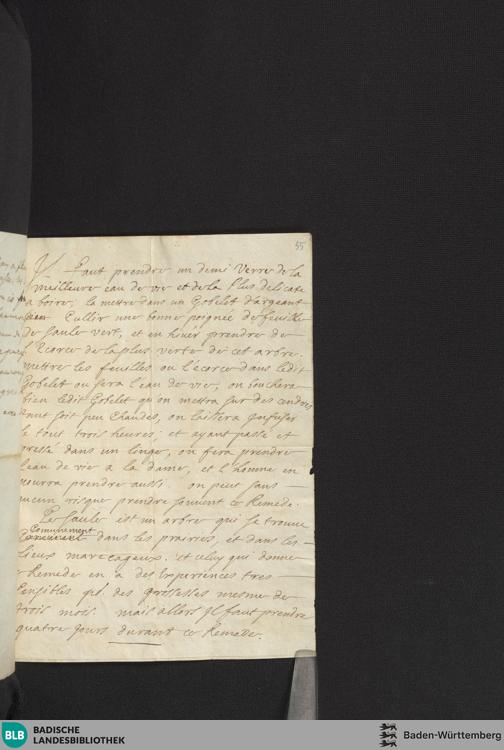 55
Il Faut prendre un demi Verre de la
meilleure eau de vie et de la Plus delicate
a boire; la mettre dans un Gobelet d'argeant
Cullir une bonne poignée de feuille
de Saule vert, et en hiver prendre de
l'Ecorce de la plus verte de cet arbre.
mettre les feuilles ou l'écorce dans ledit
Gobelet ou sera l'eau de vie, on bouchera
bien ledit Gobelet qu'on mettra sur des cendres
tant soit peu Chaudes, on laissera infuser
le tout trois heures; et ayant passé et
pressé dans un linge, on fera prendre
l'eau de vie a la dame, et l'homme en
pourra prendre aussi. on peut sans
aucun risque prendre souvent ce Remede.
Le Saule est un arbre qui se trouve
Comunement
dans les prairies, et dans les
Lieux marecageux. et celuy qui donne
ce Remede en a des Experiences tres
sensibles des grossesses mesme de
trois mois. mais allors il faut prendre
quatre jours durant ce Remede.
BLB
BADISCHE
LANDESBIBLIOTHEK
Baden-Württemberg